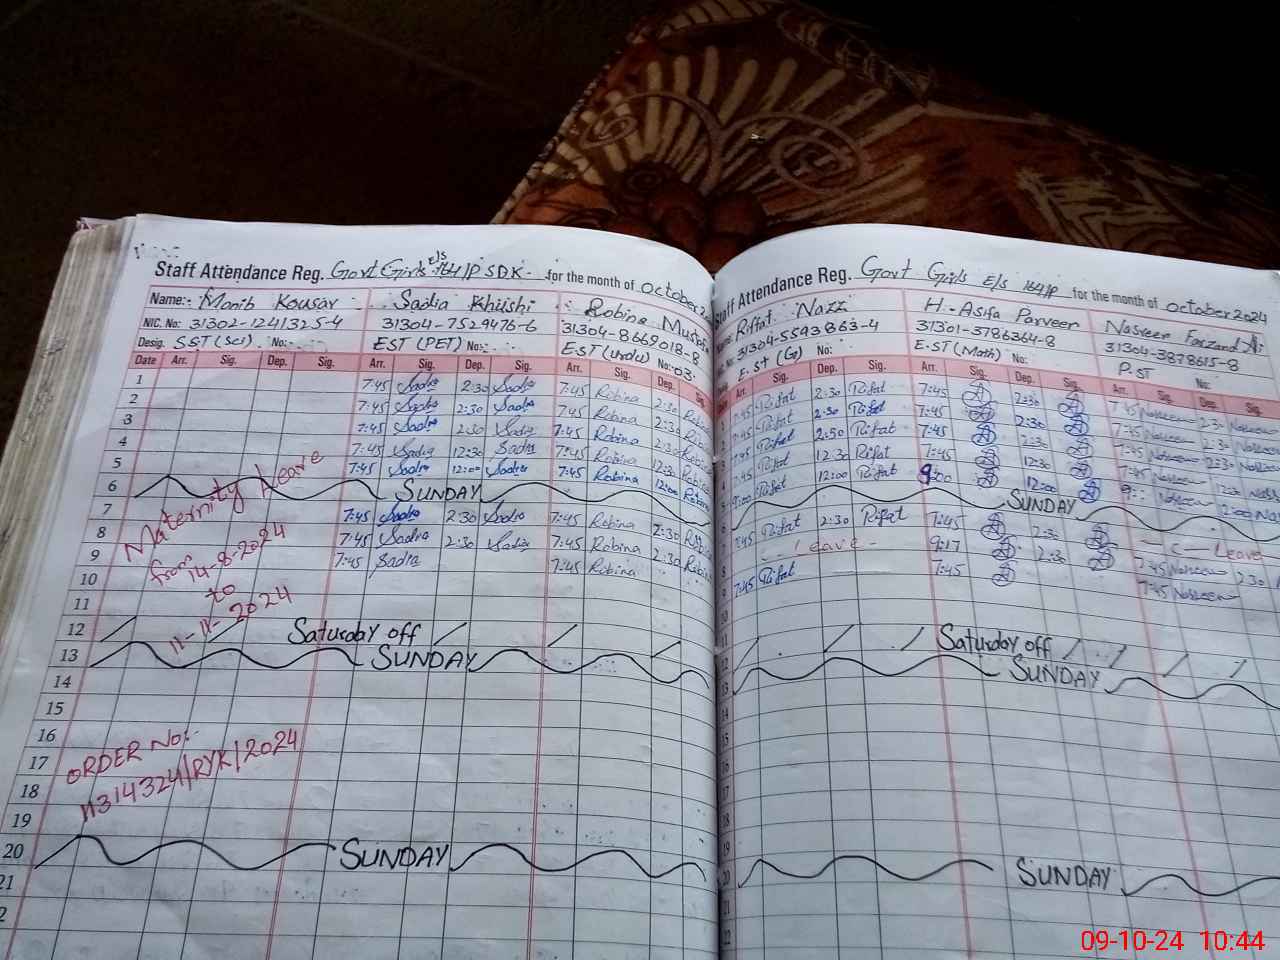 Staff Attendance Reg. Govt Girls E/S 164/P SDK. for the month of october 2
Name:- Monib Kousar Sadia Khushi Robina Mustafa
NIC. No: 31302-1241325-4 31304-7529476-6 31304-8669018-8
Desig. SST (Sci) No:- EST (PET) No:- E.ST (Urdu) No:-03.
Date Arr. Sig. Dep. Sig. Arr. Sig. Dep. Sig. Arr. Sig. Dep.
1 7:45 Sadia 2:30 Sadia 7:45 Robina 2:30 Robina
2 7:45 Sadia 2:30 Sadia 7:45 Robina 2:30 Robina
3 7:45 Sadia 2:30 Sadia 7:45 Robina 2:30 Robina
4 7:45 Sadia 12:30 Sadia 7:45 Robina 12:30 Robina
5 7:45 Sadia 12:00 Sadia 7:45 Robina 12:00 Robina
6 SUNDAY
7 7:45 Sadia 2:30 Sadia 7:45 Robina 2:30 Rob
8 7:45 Sadia 2:30 Sadia 7:45 Robina 2:30 Rob
9 7:45 Sadia 7:45 Robina
10
11
12 Saturday off
13 SUNDAY
14
15
16
17
18
19
20 SUNDAY
21
2
Maternity Leave
from 14-8-2024
to
11-11-2024
ORDER No:-
11314324/RYK/2024
Staff Attendance Reg. Govt Girls E/S 164/P for the month of october 2024
Riffat Nazz H-Asifa Parveen Nasreen Farzand Ali
31304-5593863-4 31301-3786364-8 31304-3878615-8
E.ST (G) No: E.ST (Math) No: P.ST No:
Arr. Sig. Dep. Sig. Arr. Sig. Dep. Sig. Arr. Sig. Dep. Sig.
7:45 Rifat 2:30 Rifat 7:45 2:30 7:45 Nasreen 2:30 Nasreen
7:45 Rifat 2:30 Rifat 7:45 2:30 7:45 Nasreen 2:30 Nasreen
7:45 Rifat 2:30 Rifat 7:45 2:30 7:45 Nasreen 2:30 Nasreen
7:45 Rifat 12.30 Rifat 7:45 12:30 7:45 Nasreen
9:00 Rifat 12:00 Rifat 9:00 12:00 9:- Nasreen 12:00
SUNDAY
7:45 Rifat 2:30 Rifat 7:45 2:30 - c - Leave
- leave - 9:17 2:30 7:45 Nasreen 2:30
7:45 Rifat 7:45 7:45 Nasreen
Saturday off
SUNDAY
SUNDAY
09-10-24 10:44